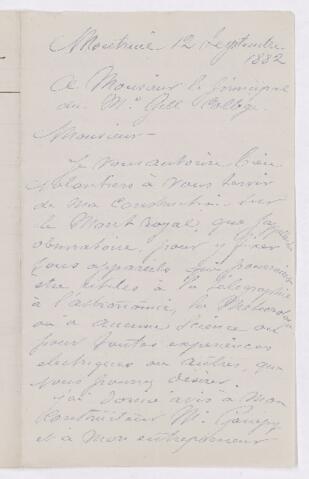 Montréal 12 Septembre
1882
A Monsieur le principal
du Mc Gill College.
Monsieur -
Je vous autorise bien
volontiers à vous servir
de ma construction sur
le Mont royal, que j'appelle
observatoire, pour y fixer
tous appareils qui pourraient
etre utiles à la télégraphie
à l'astronomie, la
ou à aucune science ou
pour toutes experiences
electriques ou autres, que
vous pourrez désirer.
J'ai donné avis à mon
Constructeur Mr
et à mon entrepreneur